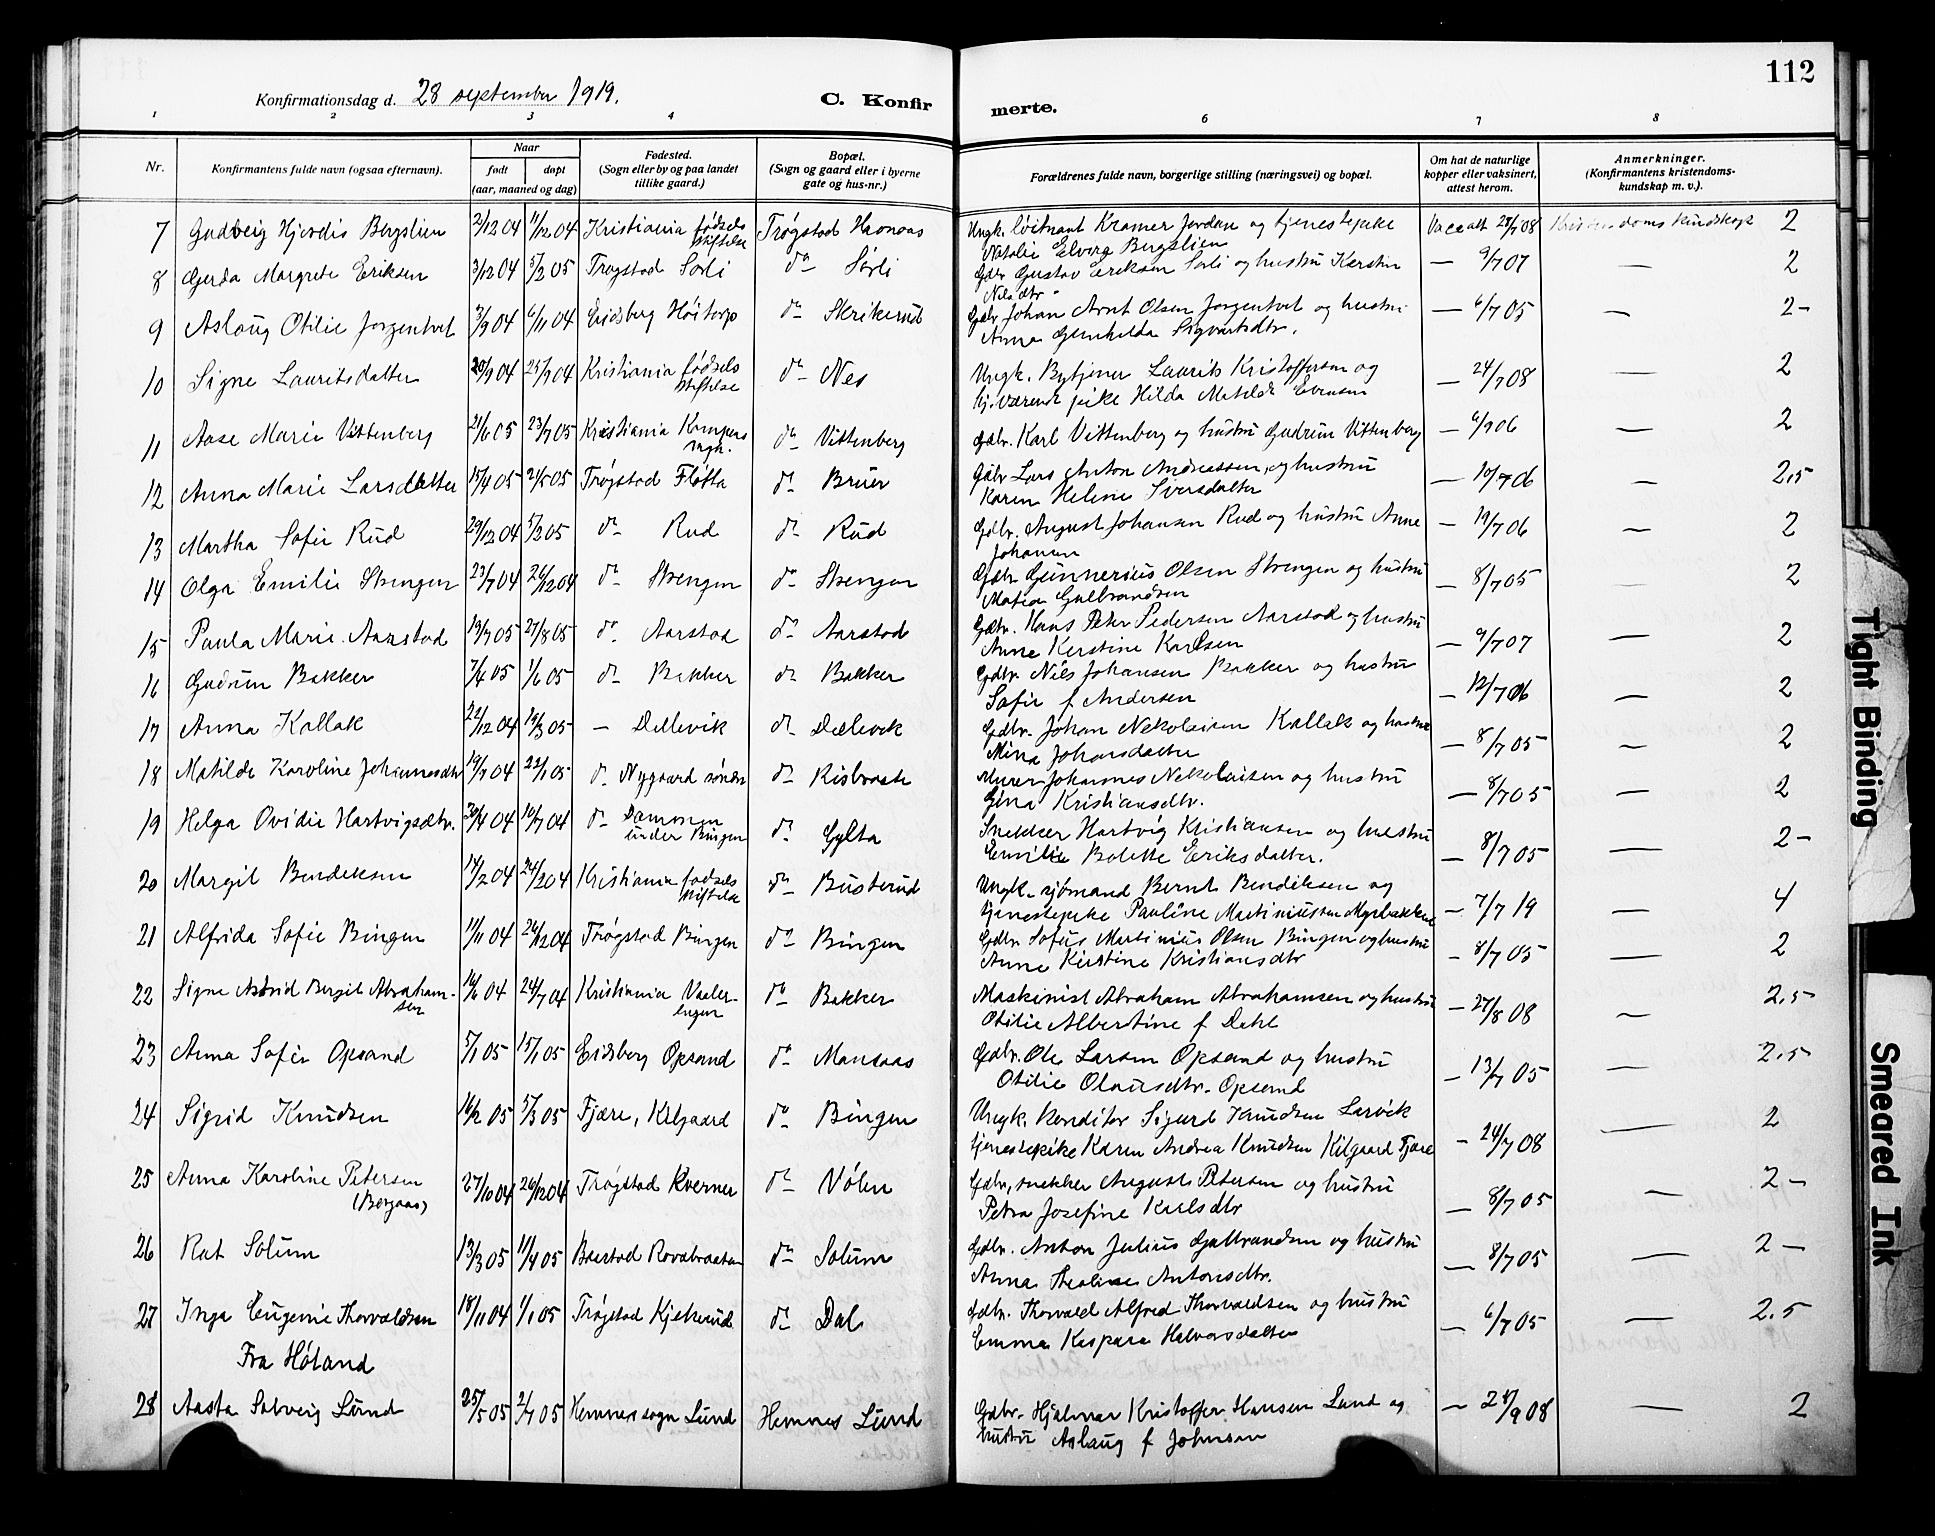 112
Konfirmationsdag d. 28 september 1919.
C. Konfirmerte.
1 2 3 4 5 6 7 8
Nr.
Konfirmantens fulde navn (ogsaa efternavn).
Naar
født døpt
(aar, maaned og dag)
Fødested.
(Sogn eller by og paa landet
tillike gaard.)
Bopæl.
(Sogn og gaard eller i byerne
gate og hus-nr.)
Forældrenes fulde navn, borgerlige stilling (næringsvei) og bopæl.
Om hat de naturlige
kopper eller vaksinert,
attest herom.
Anmerkninger.
(Konfirmantens kristendoms-
kundskap m. v.).
7 Gudveig Hjerdis Bergslien 2/12 04 11/12 04 Kristiania fødsels stiftelse Trøgstad Havnaas Ungk. løitnant Kramer Jordan og tjenestepike Vacc att 28/7 08 Kristendoms kundskap 2
Natalie Elvira Bergslien
8 Gerda Margrete Eriksen 3/12 04 5/2 05 Trøgstad Sørli do Sørli Gdbr Gustav Eriksen Sørli og hustru Kerstin — 9/7 07 — 2
Nilsdtr
9 Aslaug Otilie Jorgentvet 3/9 04 6/11 04 Eidsberg Høitorp do Skrikerud Gdbr Johan Arnt Olsen Jorgentvet og hustru — 6/7 05 — 2-
Anna Gunhilda Sigvartsdtr.
10 Signe Lauritsdatter 20/9 04 25/9 04 Kristiania fødsels stiftelse do Nes Ungk. Bytjener Laurits Kristoffersen og — 24/7 08 — 2
hj.værende pike Hilda Matilde Evensen
11 Aase Marie Vittenberg 21/6 05 23/7 05 Kristiania Kampens mgh. do Vittenberg Gdbr. Karl Vittenberg og hustru Gudrun Vittenberg — 6/9 06 — 2
12 Anna Marie Larsdatter 15/4 05 21/5 05 Trøgstad Fløtta do Bruer Gdbr Lars Anton Andreassen og hustru — 10/7 06 — 2,5
Karen Helene Iversdatter
13 Martha Sofie Rud 29/12 04 5/2 05 do Rud do Rud Gdbr. August Johansen Rud og hustru Anne — 19/7 06 — 2
Johansen
14 Olga Emilie Strengen 23/7 04 26/12 04 do Strengen do Strengen Gdbr Gunnerius Olsen Strengen og hustru — 8/7 05 — 2
Matea Gulbrandsen
15 Paula Marie Aarstad 19/7 05 27/8 05 do Aarstad do Aarstad Gdbr. Hans Peter Pedersen Aarstad og hustru — 9/7 07 — 2
Anne Kerstine Karlsen
16 Gudrun Bakker 7/4 05 1/6 05 do Bakker do Bakker Gdbr. Nils Johansen Bakker og hustru — 12/7 06 — 2
Sofie f Andersen
17 Anna Kallak 22/12 04 19/3 05 — Dillevik do Dillevik Gdbr. Johan Nekolaisen Kallak og hustru — 8/7 05 — 2
Mina Johansdatter
18 Matilde Karoline Johannesdtr 19/7 04 22/1 05 do Nygaard søndre do Risbraate Murer Johannes Nekolaisen og hustru — 8/7 05 — 2
Gina Kristiansdtr.
19 Helga Ovidie Hartvigsdtr. 30/4 04 10/7 04 do Dammen under Bingen do Gylta Snekker Hartvig Kristiansen og hustru — 8/7 05 — 2-
Emilie Bolette Eriksdatter.
20 Margit Bendiksen 17/2 04 24/2 04 Kristiania fødsels stiftelse do Busterud Ungk. sjømand Bernt Bendiksen og — 7/7 19 — 4
tjenestepike Pauline Martiniussen Myrbakken
21 Alfrida Sofie Bingen 11/11 04 26/12 04 Trøgstad Bingen do Bingen Gdbr Sofus Martinius Olsen Bingen og hustru — 8/7 05 — 2
Anne Kirstine Kristiansdtr
22 Signe Astrid Bergit Abrahamsen 16/6 04 24/7 04 Kristiania Vaalerengen do Bakker Maskinist Abraham Abrahamsen og hustru — 27/8 08 — 2,5
Otilie Albertine f Dahl
23 Anna Sofie Opsand 5/1 05 15/1 05 Eidsberg Opsand do Monsaas Gdbr. Ole Larsen Opsand og hustru — 13/7 05 — 2,5
Otilie Olausdtr. Opsand
24 Sigrid Knudsen 16/2 05 5/3 05 Fjære, Kilgaard do Bingen Ungk. konditor Sigurd Knudsen Larvik — 24/7 08 — 2
tjenestepike Karen Andrea Knudsen Kilgaard Fjære
25 Anna Karoline Petersen 27/10 04 26/12 04 Trøgstad Kverner do Vølen Gdbr, snekker August Petersen og hustru — 8/7 05 — 2-
(Borgaas) Petra Josefine Karlsdtr
26 Rut Solum 13/3 05 11/4 05 Baastad Rovabraaten do Solum Gdbr. Anton Julius Gulbrandsen og hustru — 8/7 05 — 2-
Anna Antonsdtr.
27 Inga Eugenie Thorvaldsen 18/11 04 1/1 05 Trøgstad Kjekerud do Dal Gdbr. Thorvald Alfred Thorvaldsen og hustru — 6/7 05 — 2,5
Emma Kaspara Halvorsdatter
Fra Høland
28 Aasta Solveig Lund 25/5 05 2/7 05 Hemnes sogn Lund Hemnes Lund Gdbr. Hjalmar Kristoffer Hansen Lund og — 24/9 08 — 2
hustru Aslaug f Johnsen
Tight Binding
Smeared Ink